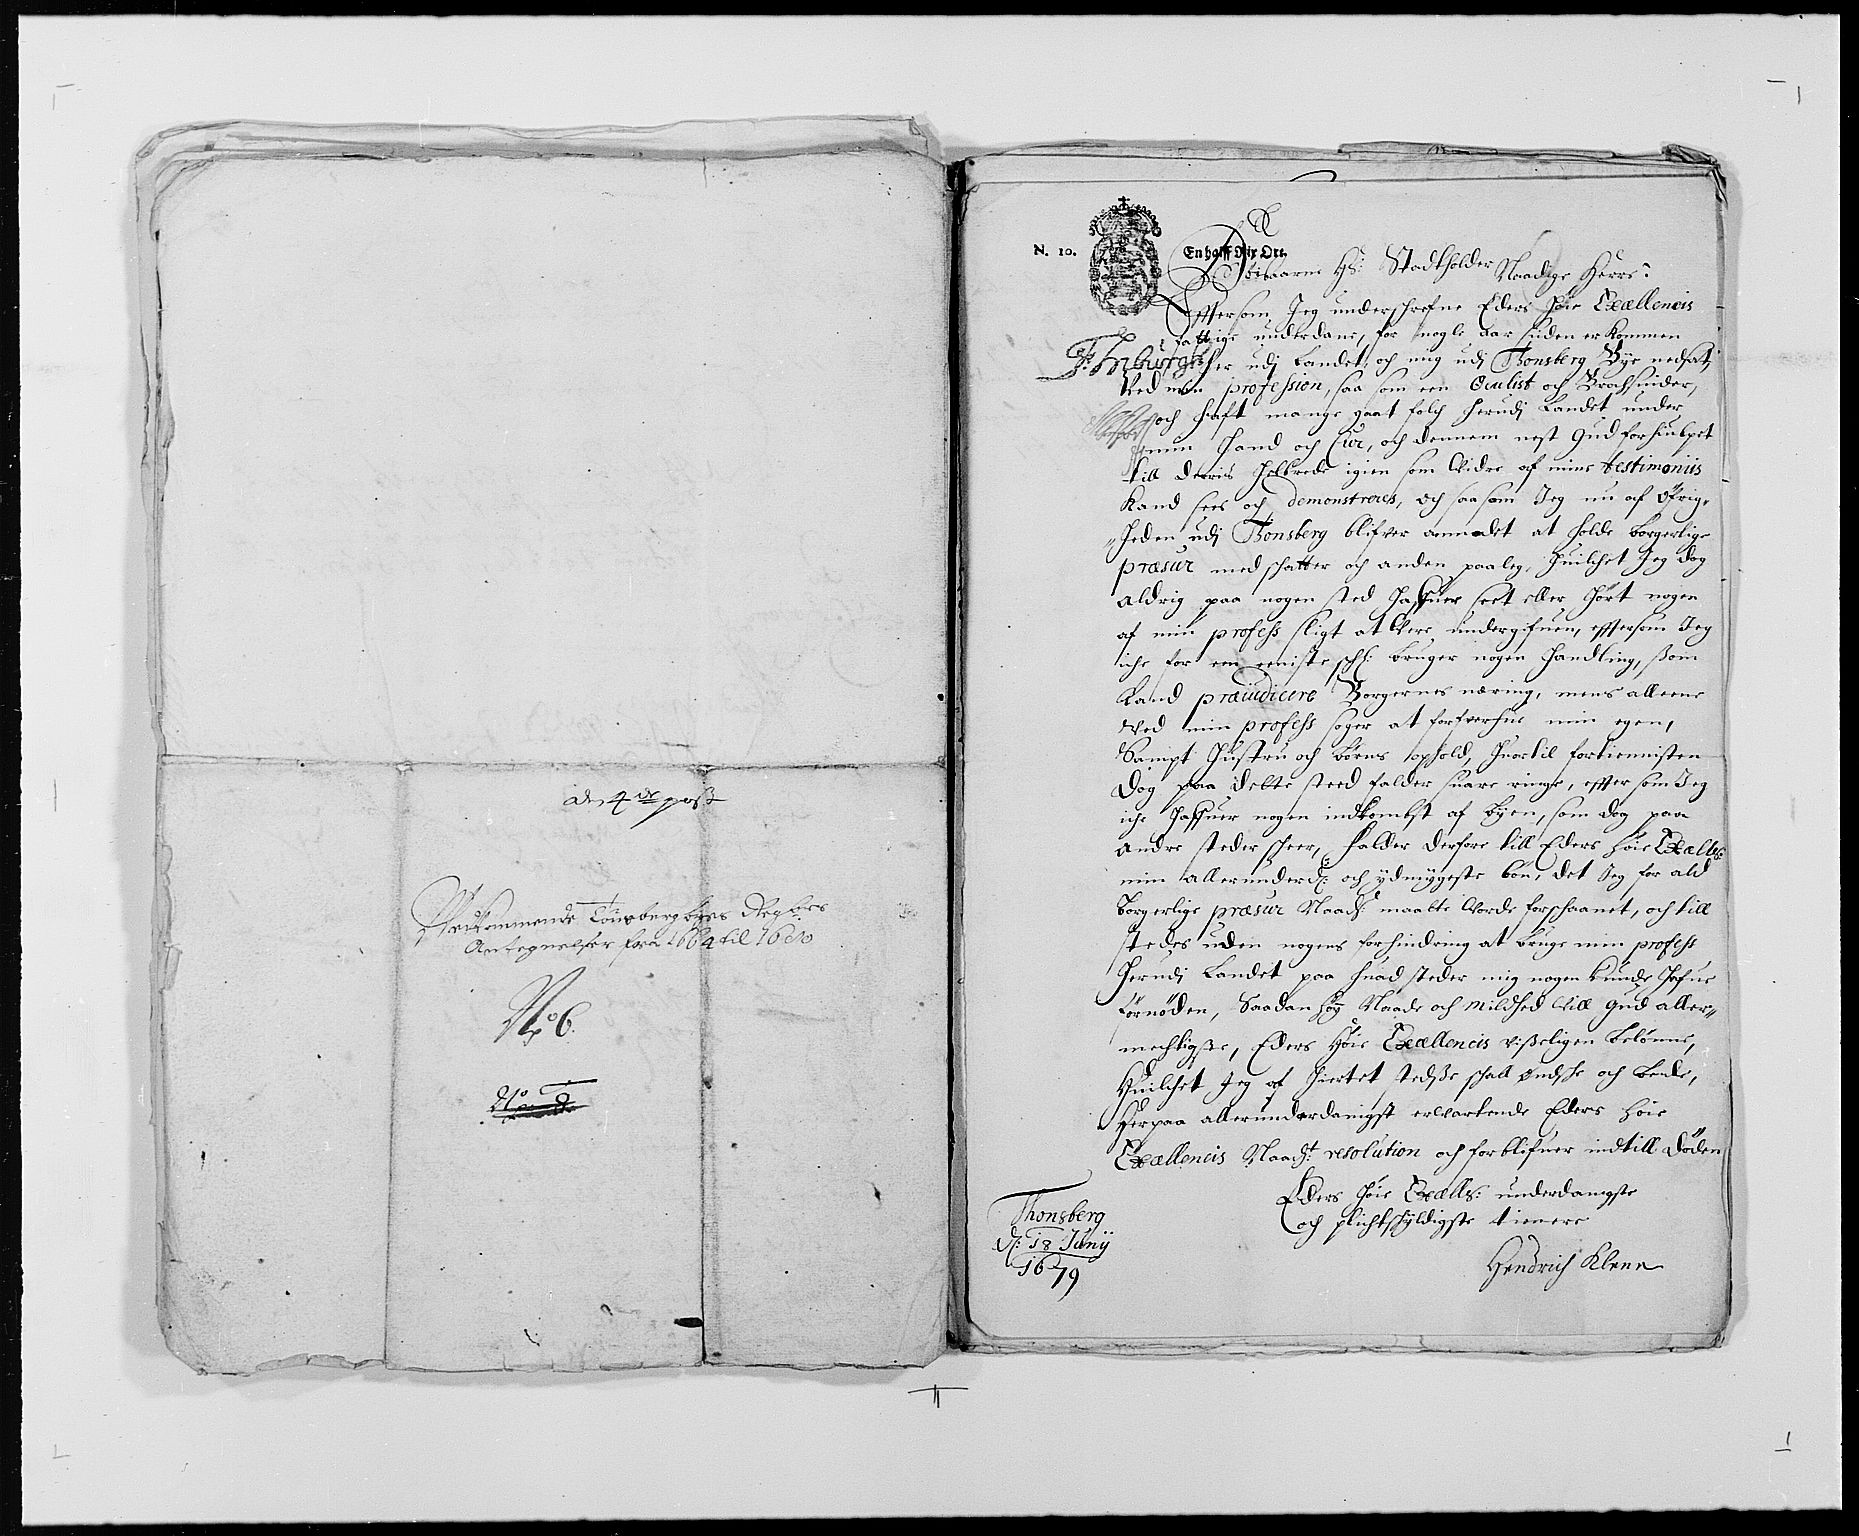 ad 4de post
Vedkommende Tønsberg byes Regbers
Antegnelser fra 1664 til 1680
No 6.
N. 10.
En halff Rix Ort.
Høibaarne Hr: Stadtholder Naadige Herre:
Effersom Jeg underschrefne Eders Høie Excellencis
fattige underdane, for nogle aar siden er kommen
her udj Landet, och mig udj Tonsberg Bye nedsat,
Ved min profession, saa som een Oculist och Brochsnider,
och hafft mange gaat folch herudj Landet under
min Hand och Cur, och dennem nest Gud forhiulpet
till deris Helbrede igien som Vidre af mine testimoniis
Kand sees och demonstreres, och saasom Jeg nu af Øfrig-
heden udj Tonsberg blifver anmodet at holde borgerlige
præsur med schatter och anden paaleg, Huilchet Jeg dog
aldrig paa nogen sted Haffuer seet eller Hørt nogen
af min profess sligt at Vere undergifuen, effersom Jeg
iche for een eeniste sch: bruger nogen Handling, som
Kand præiudicere Borgernes næring, mens alleene
Ved min profess søger at forhverfue min egen,
Sampt Hustru och børns ophold, Huortil fortienisten
dog paa dette sted falder suare ringe, effersom Jeg
iche Haffuer nogen indkombst af byen, som dog paa
andre steder scheer, Falder derfore till Eders Høie Excells:
min allerunderd: och ydmygeste bøn, det Jeg for ald
borgerlige præsur Naad: maatte Vorde forschaanet, och till
stedes uden nogens forhindring at bruge min profess
herudj Landet paa huad steder mig nogen Kunde Hafue
fornøden, Saadan Høy Naade och Mildhed Vill Gud aller-
mechtigste, Eders Høie Excellencis visseligen belønne,
Huilchet Jeg af Hiertet stedsse schall øndsche och bede,
Herpaa allerunderdanigst ervartende Eders Høie
Excellencis Naad: resolution och forblifuer indtill døden
Eders Høie Excells: underdanigste
och plichtschyldigste tienere
Thonsberg
d: 18 Junij
1679
Hendrich Klene